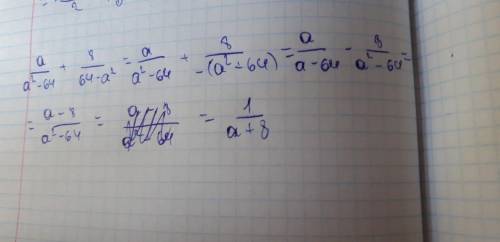 2
a/(a²-64) + 8/(64-a²) = a/(a²-64) + 8/(-(a²-64)) = a/(a-64) - 8/(a²-64) =
= (a-8)/(a²-64) = = 1/(a+8)